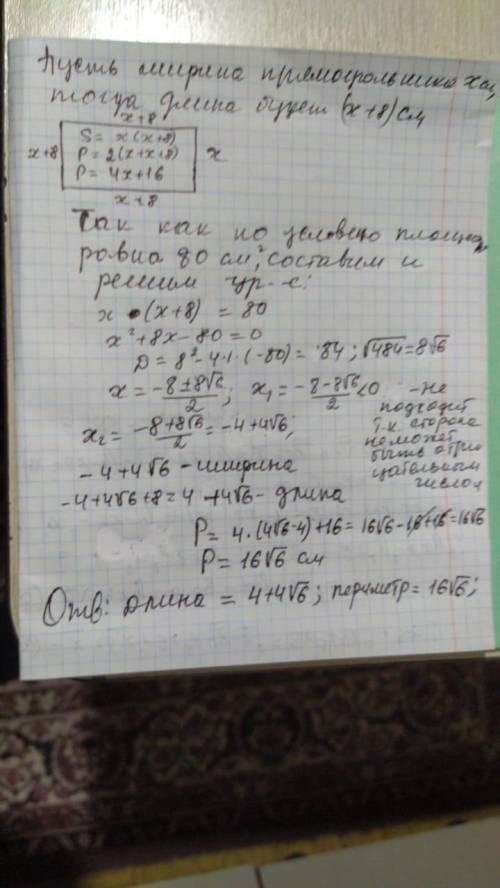 Пусть ширина прямоугольника x см,
тогда длина будет (x+8) см
x+8
x+8
S = x(x+8)
P = 2(x+x+8)
P = 4x+16
x
x+8
Так как по условию площадь
равна 80 см², составим и
решим ур-е:
x • (x+8) = 80
x²+8x-80=0
D = 8²-4·1·(-80) = 84; √484=8√6
x = (-8±8√6)/2; x₁ = (-8-8√6)/2 <0 -не
подходит
т.к. сторона
не может
быть отри
цательным
числом
x₂ = (-8+8√6)/2 = -4+4√6;
-4+4√6 -ширина
-4+4√6+8=4+4√6- длина
P = 4·(4√6-4)+16= 16√6-16+16=16√6
P = 16√6 см
Отв: длина = 4+4√6; периметр = 16√6;